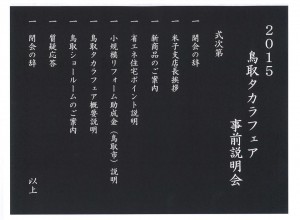 2015
鳥取タカラフェア
事前説明会
式次第
一 開会の辞
一 米子支店長挨拶
一 新商品のご案内
一 省エネ住宅ポイント説明
一 小規模リフォーム助成金(鳥取市)説明
一 鳥取タカラフェア概要説明
一 鳥取ショールームのご案内
一 質疑応答
一 閉会の辞
以上